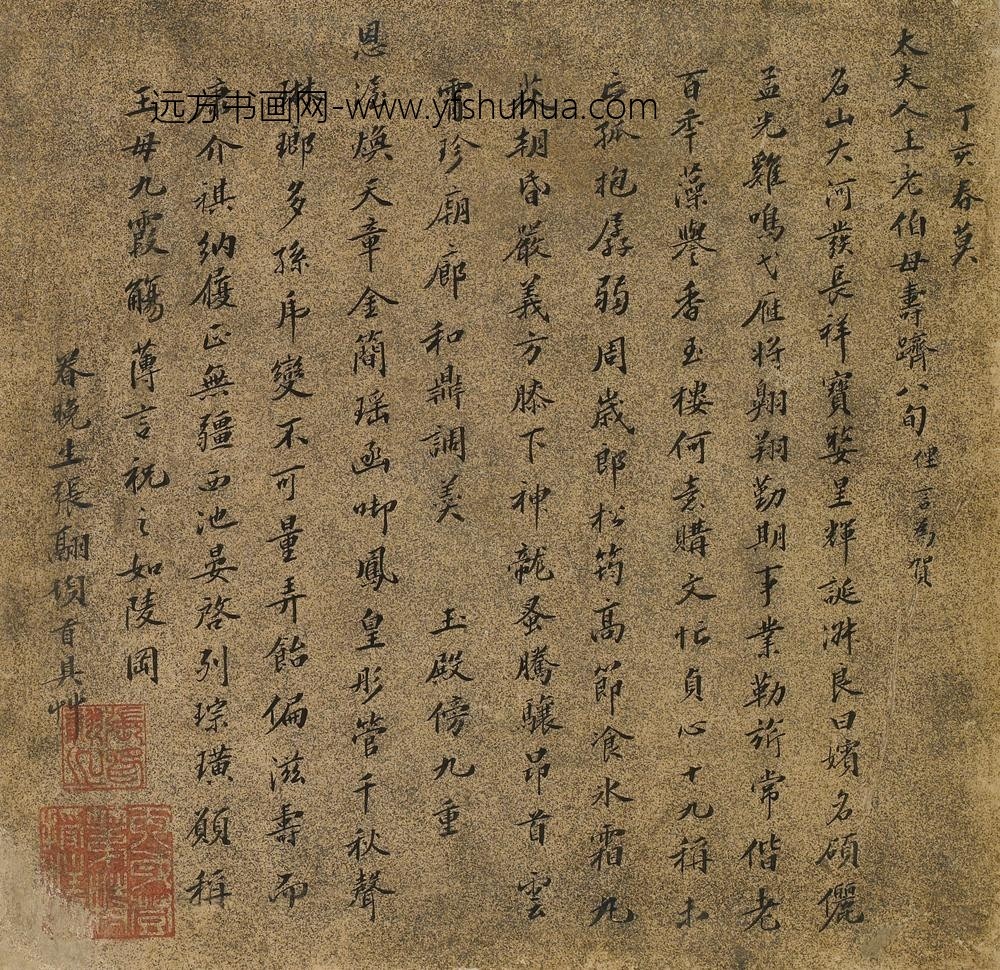 丁亥春莫
太夫人王老伯母壽躋八旬俚言為賀
名山大河發長祥寶婺呈輝誕淑良曰嬪名碩儷
孟光雞鳴弋雁將翱翔勤期事業勒旂常偕老
百年藻譽香玉樓何意購文忙貞心十九稱未
亡孤抱孱弱周歲郎松筠高節飡冰霜九
朝昏嚴義方膝下神龍蚤騰驤昂首雲
霄珍廟廊和鼎調羹 玉殿傍九重
恩澤煥天章金簡瑤函啣鳳皇彤管千秋聲
琳瑯多孫虎變不可量弄飴偏滋壽而
康介祺納履正無疆西池晏啓列琮璜願稱
王母九霞觴薄言祝之如陵岡
眷晚生張翮頓首具艸
远方书画网-www.yfshuhua.com